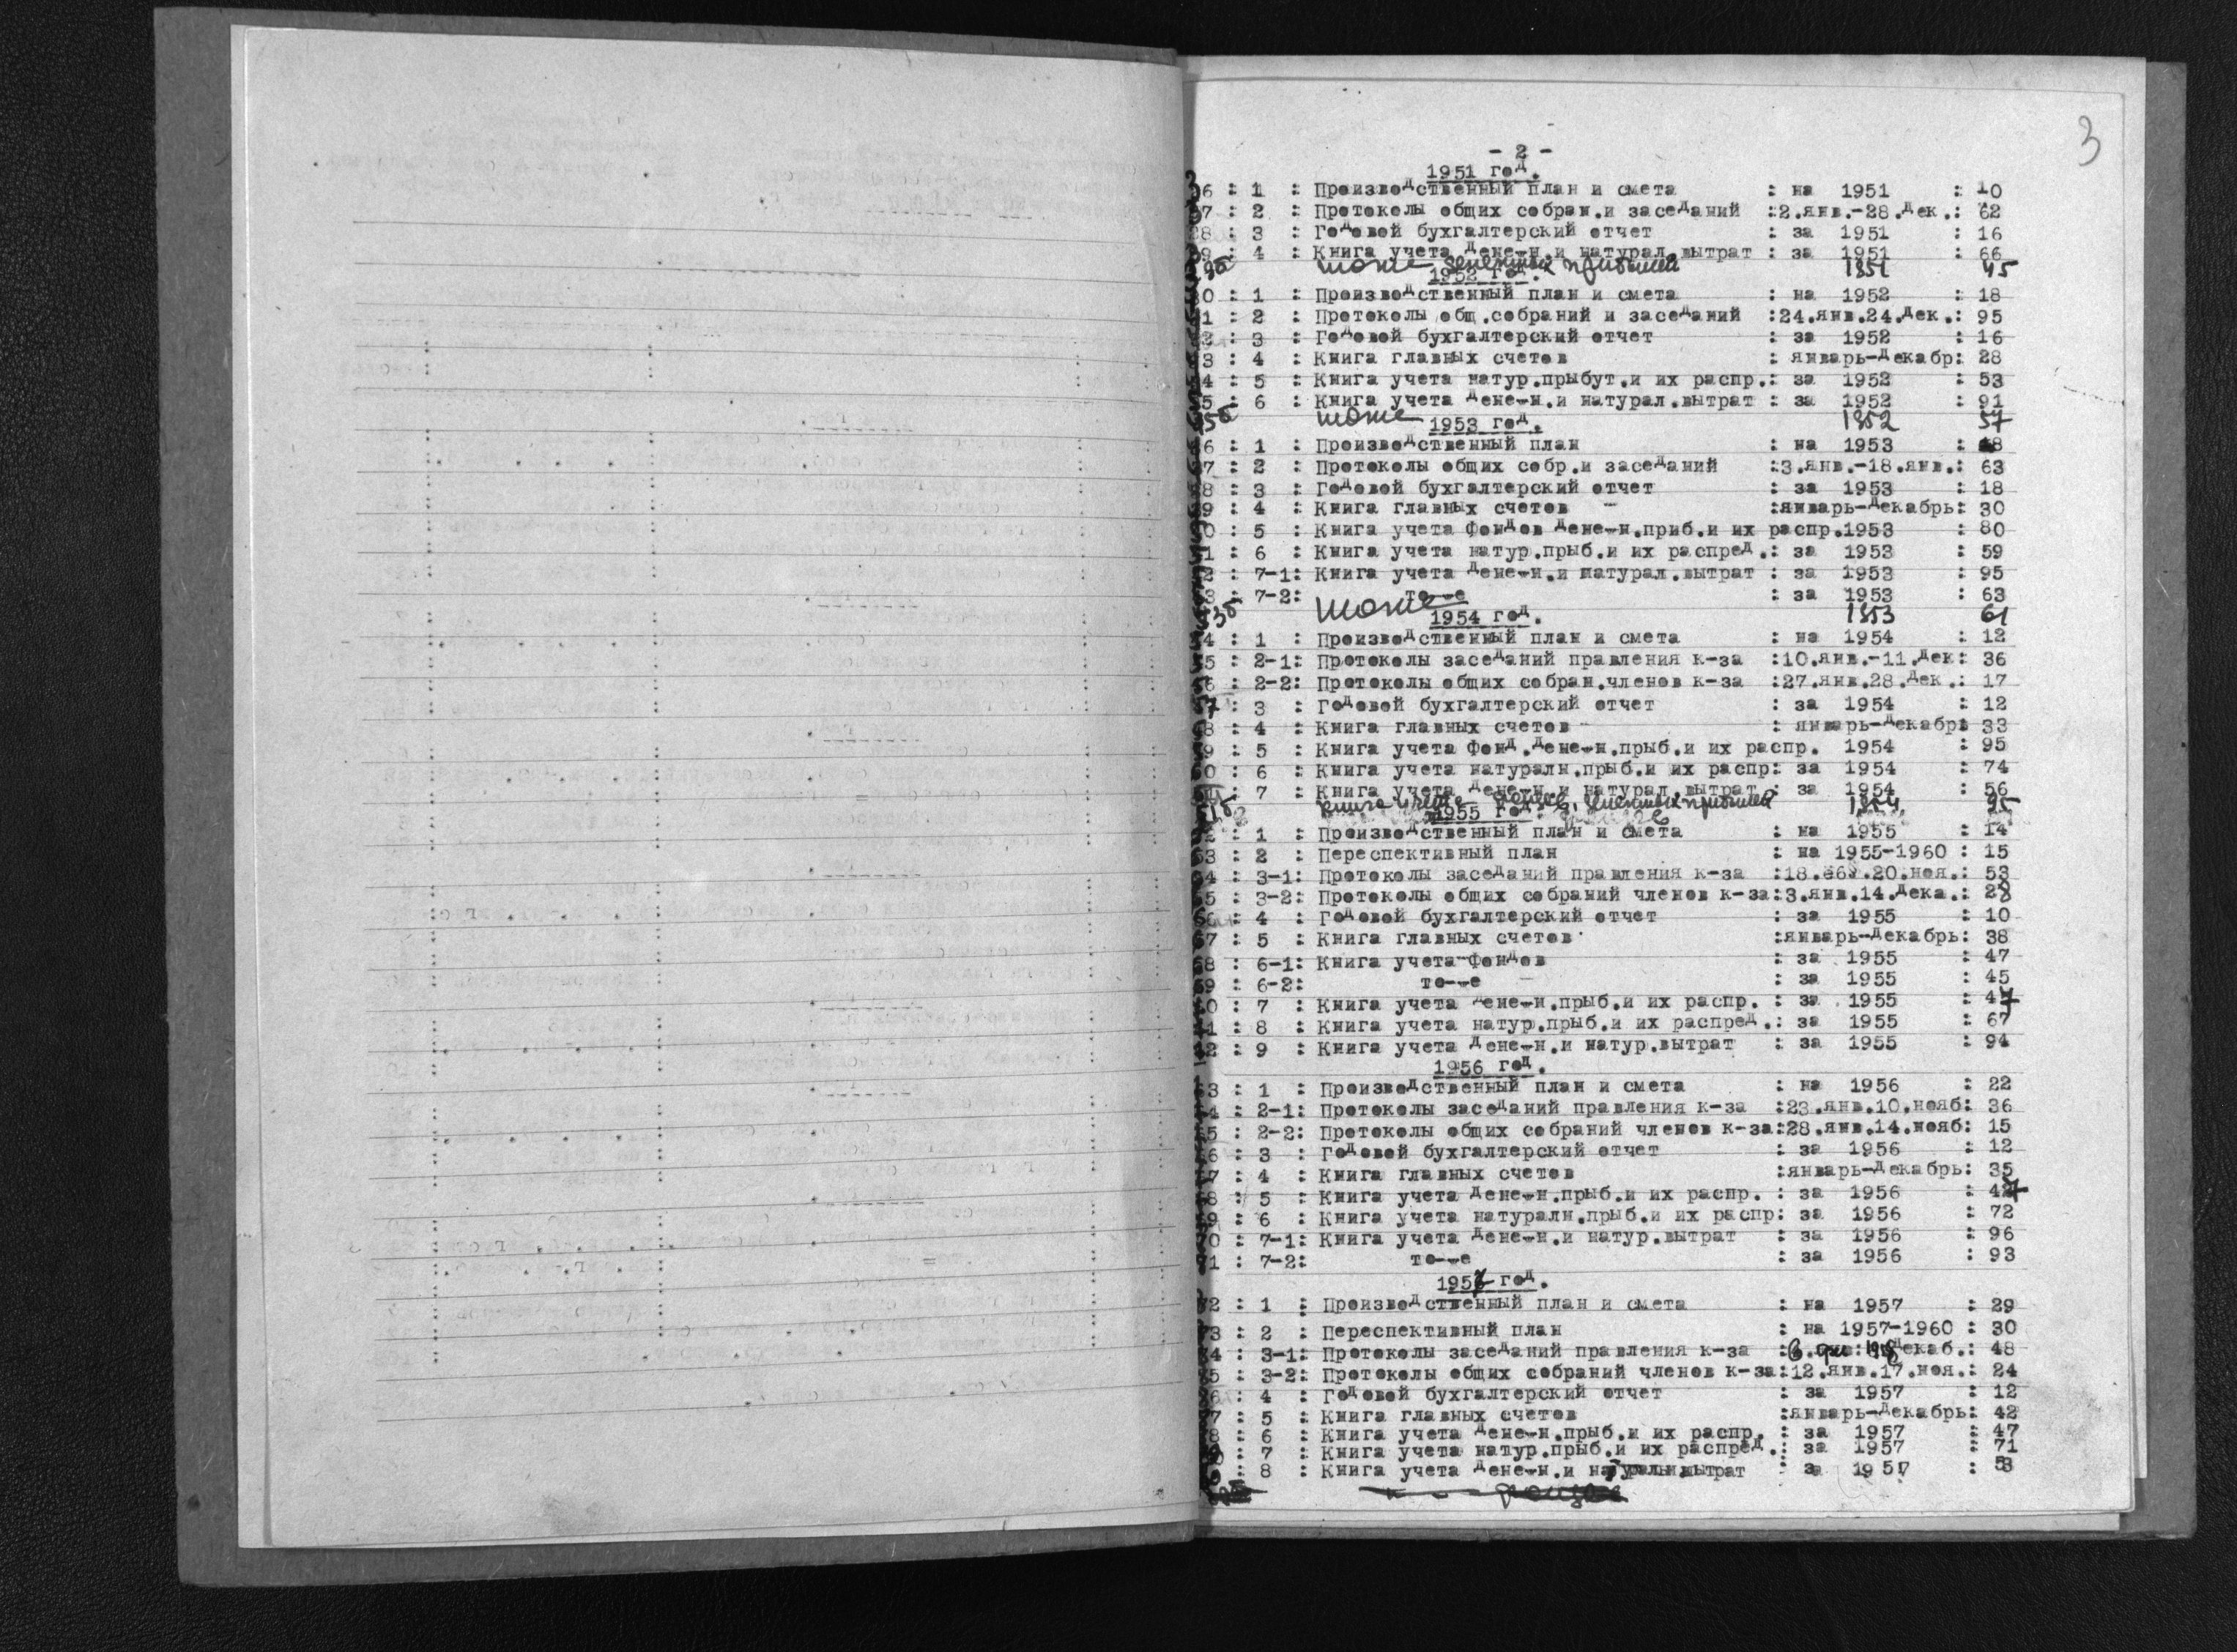 3
- 2 -
1951 год.
6 : 1 : Производственный план и смета : на 1951 : 10
7 : 2 : Протоколы общих собран.и заседаний :2.янв.-28.дек.: 62
8 : 3 : Годовой бухгалтерский отчет : за 1951 : 16
9 : 4 : Книга учета денежн.и натурал.вытрат : за 1951 : 66
тоже денежных прибылей 1951 45
1952 год.
0 : 1 : Производственный план и смета : на 1952 : 18
1 : 2 : Протоколы общ.собраний и заседаний :24.янв.24.дек.: 95
2 : 3 : Годовой бухгалтерский отчет : за 1952 : 16
3 : 4 : Книга главных счетов : январь-декабр: 28
4 : 5 : Книга учета натур.прыбут.и их распр.: за 1952 : 53
5 : 6 : Книга учета денежн.и натурал.вытрат : за 1952 : 91
тоже 1952 57
1953 год.
6 : 1 : Производственный план : на 1953 : 8
7 : 2 : Протоколы общих собр.и заседаний :3.янв.-18.янв.: 63
8 : 3 : Годовой бухгалтерский отчет : за 1953 : 18
9 : 4 : Книга главных счетов :январь-декабрь: 30
0 : 5 : Книга учета фондов денежн.приб.и их распр.1953 : 80
1 : 6 : Книга учета натур.прыб.и их распред.: за 1953 : 59
2 : 7-1: Книга учета денежн.и натурал.вытрат : за 1953 : 95
3 : 7-2: то-же : за 1953 : 63
тоже 1953 61
1954 год.
4 : 1 : Производственный план и смета : на 1954 : 12
5 : 2-1: Протоколы заседаний правления к-за :10.янв.-11.дек: 36
6 : 2-2: Протоколы общих собран.членов к-за :27.янв.28.дек.: 17
7 : 3 : Годовой бухгалтерский отчет : за 1954 : 12
8 : 4 : Книга главных счетов : январь-декабрь 33
9 : 5 : Книга учета фонд.денежн.прыб.и их распр. 1954 : 95
0 : 6 : Книга учета натуралн.прыб.и их распр: за 1954 : 74
7 : Книга учета денежн.и натурал.вытрат : за 1954 : 56
книга учета денежных прибылей 1954 95
1955 год.
2 : 1 : Производственный план и смета : на 1955 : 14
3 : 2 : Переспективный план : на 1955-1960 : 15
4 : 3-1: Протоколы заседаний правления к-за :18. .20.ноя.: 53
5 : 3-2: Протоколы общих собраний членов к-за:3.янв.14.дека.: 28
6 : 4 : Годовой бухгалтерский отчет : за 1955 : 10
7 : 5 : Книга главных счетов :январь-декабрь: 38
8 : 6-1: Книга учета фондов : за 1955 : 47
9 : 6-2: то-же : за 1955 : 45
0 : 7 : Книга учета денежн.прыб.и их распр. : за 1955 : 47
1 : 8 : Книга учета натур.прыб.и их распред.: за 1955 : 67
2 : 9 : Книга учета денежн.и натур.вытрат : за 1955 : 94
1956 год.
3 : 1 : Производственный план и смета : на 1956 : 22
4 : 2-1: Протоколы заседаний правления к-за :23.янв.10.нояб: 36
5 : 2-2: Протоколы общих собраний членов к-за:28.янв.14.нояб: 15
6 : 3 : Годовой бухгалтерский отчет : за 1956 : 12
7 : 4 : Книга главных счетов :январь-декабрь: 35
8 : 5 : Книга учета денежн.прыб.и их распр. : за 1956 : 47
9 : 6 : Книга учета натуралн.прыб.и их распр: за 1956 : 72
0 : 7-1: Книга учета денежн.и натур.вытрат : за 1956 : 96
1 : 7-2: то-же : за 1956 : 93
1957 год.
2 : 1 : Производственный план и смета : на 1957 : 29
3 : 2 : Переспективный план : на 1957-1960 : 30
4 : 3-1: Протоколы заседаний правления к-за : декаб.: 48
5 : 3-2: Протоколы общих собраний членов к-за:12.янв.17.ноя.: 24
6 : 4 : Годовой бухгалтерский отчет : за 1957 : 12
7 : 5 : Книга главных счетов :январь-декабрь: 42
8 : 6 : Книга учета денежн.прыб.и их распр. : за 1957 : 47
: 7 : Книга учета натур.прыб.и их распред.: за 1957 : 71
: 8 : Книга учета денежн.и натуральн.вытрат : за 1957 : 53